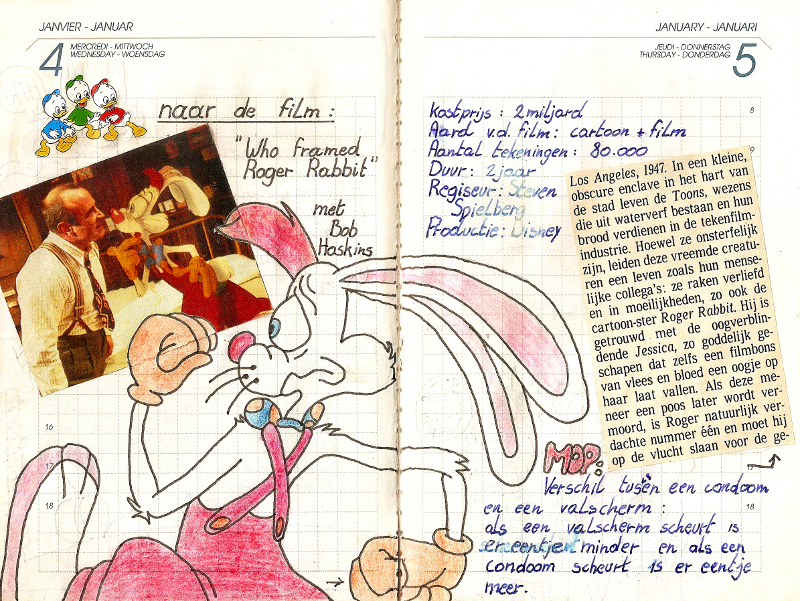 JANVIER - JANUAR
4 MERCREDI - MITTWOCH
WEDNESDAY - WOENSDAG
naar de film:
"Who framed
Roger Rabbit"
met
Bob
Hoskins
16
17
18
JANUARY - JANUARI
JEUDI - DONNERSTAG
THURSDAY - DONDERDAG 5
8
9
Kostprijs: 2 miljard
Aard v.d. film: cartoon + film
Aantal tekeningen: 80.000
Duur: 2 jaar
Regiseur: Steven
Spielberg
Productie: Disney
Los Angeles, 1947. In een kleine,
obscure enclave in het hart van
de stad leven de Toons, wezens
die uit waterverf bestaan en hun
brood verdienen in de tekenfilm-
industrie. Hoewel ze onsterfelijk
zijn, leiden deze vreemde creatu-
ren een leven zoals hun mense-
lijke collega's: ze raken verliefd
en in moeilijkheden, zo ook de
cartoon-ster Roger Rabbit. Hij is
getrouwd met de oogverblin-
dende Jessica, zo goddelijk ge-
schapen dat zelfs een filmbons
van vlees en bloed een oogje op
haar laat vallen. Als deze me-
neer een poos later wordt ver-
moord, is Roger natuurlijk ver-
dachte nummer één en moet hij
op de vlucht slaan voor de ge-
MOP:
Verschil tussen een condoom
en een valscherm:
als een valscherm scheurt is
er eentje minder en als een
condoom scheurt is er eentje
meer.
18